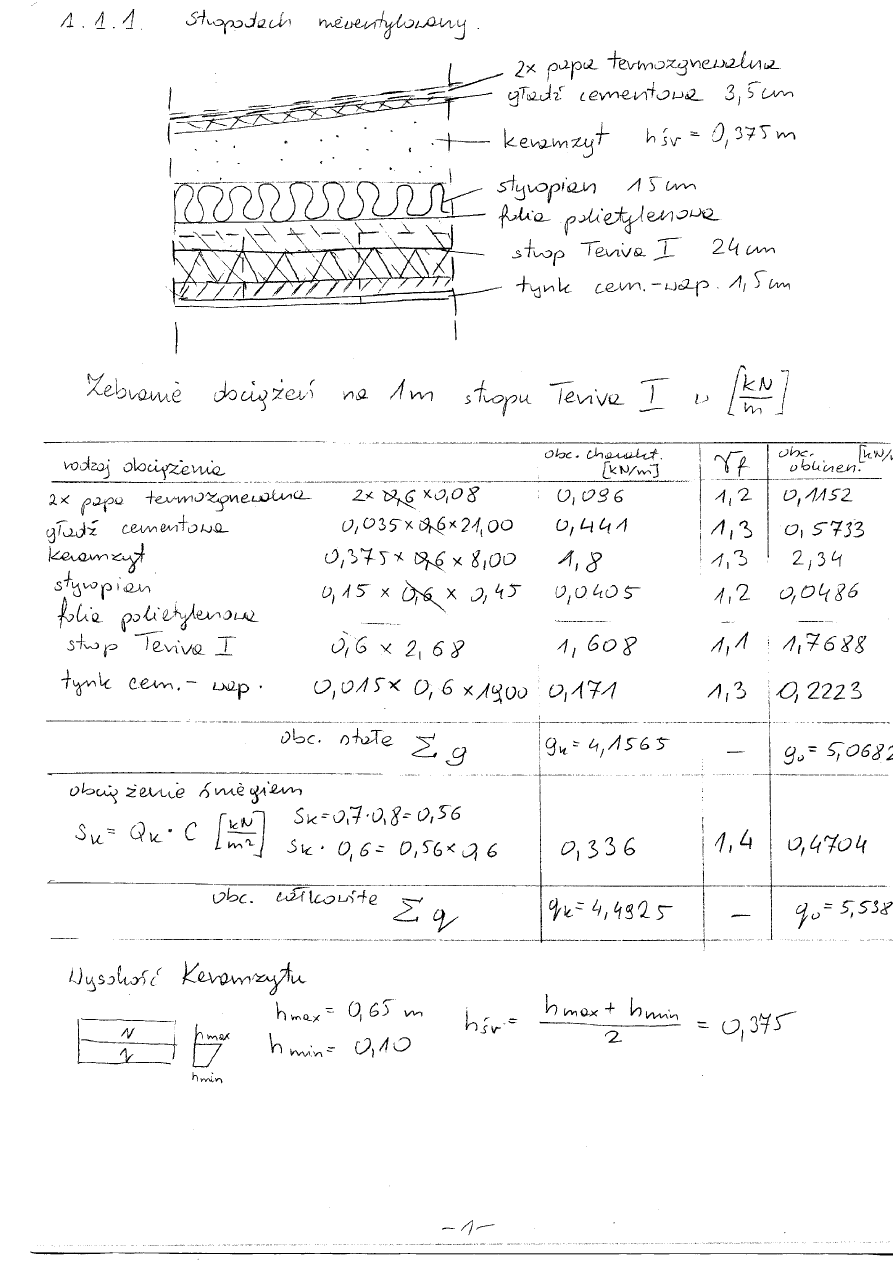 1.1.1. Stropodach niewentylowany.
2x papa termozgrzewalna
gładź cementowa 3,5cm
keramzyt hśr = 0,375m
styropian 15cm
folia polietylenowa
strop Teriva I 24cm
tynk cem.-wap. 1,5cm
Zebranie obciążeń na 1m stropu Teriva I w [kN/m]
rodzaj obciążenia obc. charakt. [kN/m] γf obc. obliczen. [kN/
2x papa termozgrzewalna 2x 0,6 x0,08 0,096 1,2 0,1152
gładź cementowa 0,035x0,6x21,00 0,441 1,3 0,5733
keramzyt 0,375x 0,6 x 8,00 1,8 1,3 2,34
styropian 0,15 x 0,6 x 0,45 0,0405 1,2 0,0486
folia polietylenowa — — —
strop Teriva I 0,6 x 2,68 1,608 1,1 1,7688
tynk cem.- wap. 0,015x 0,6 x19,00 0,171 1,3 0,2223
obc. stałe Σg gk=4,1565 — go=5,0682
obciążenie śniegiem
Sk= Qk · C [kN/m²] Sk=0,7·0,8=0,56
Sk · 0,6= 0,56x0,6 0,336 1,4 0,4704
obc. całkowite Σq qk=4,4925 — qo=5,538
Wysokość Keramzytu
hmax= 0,65 m
hśr= (hmax + hmin)/2 = 0,375
hmin= 0,10
N
N
hmax
hmin
-1-